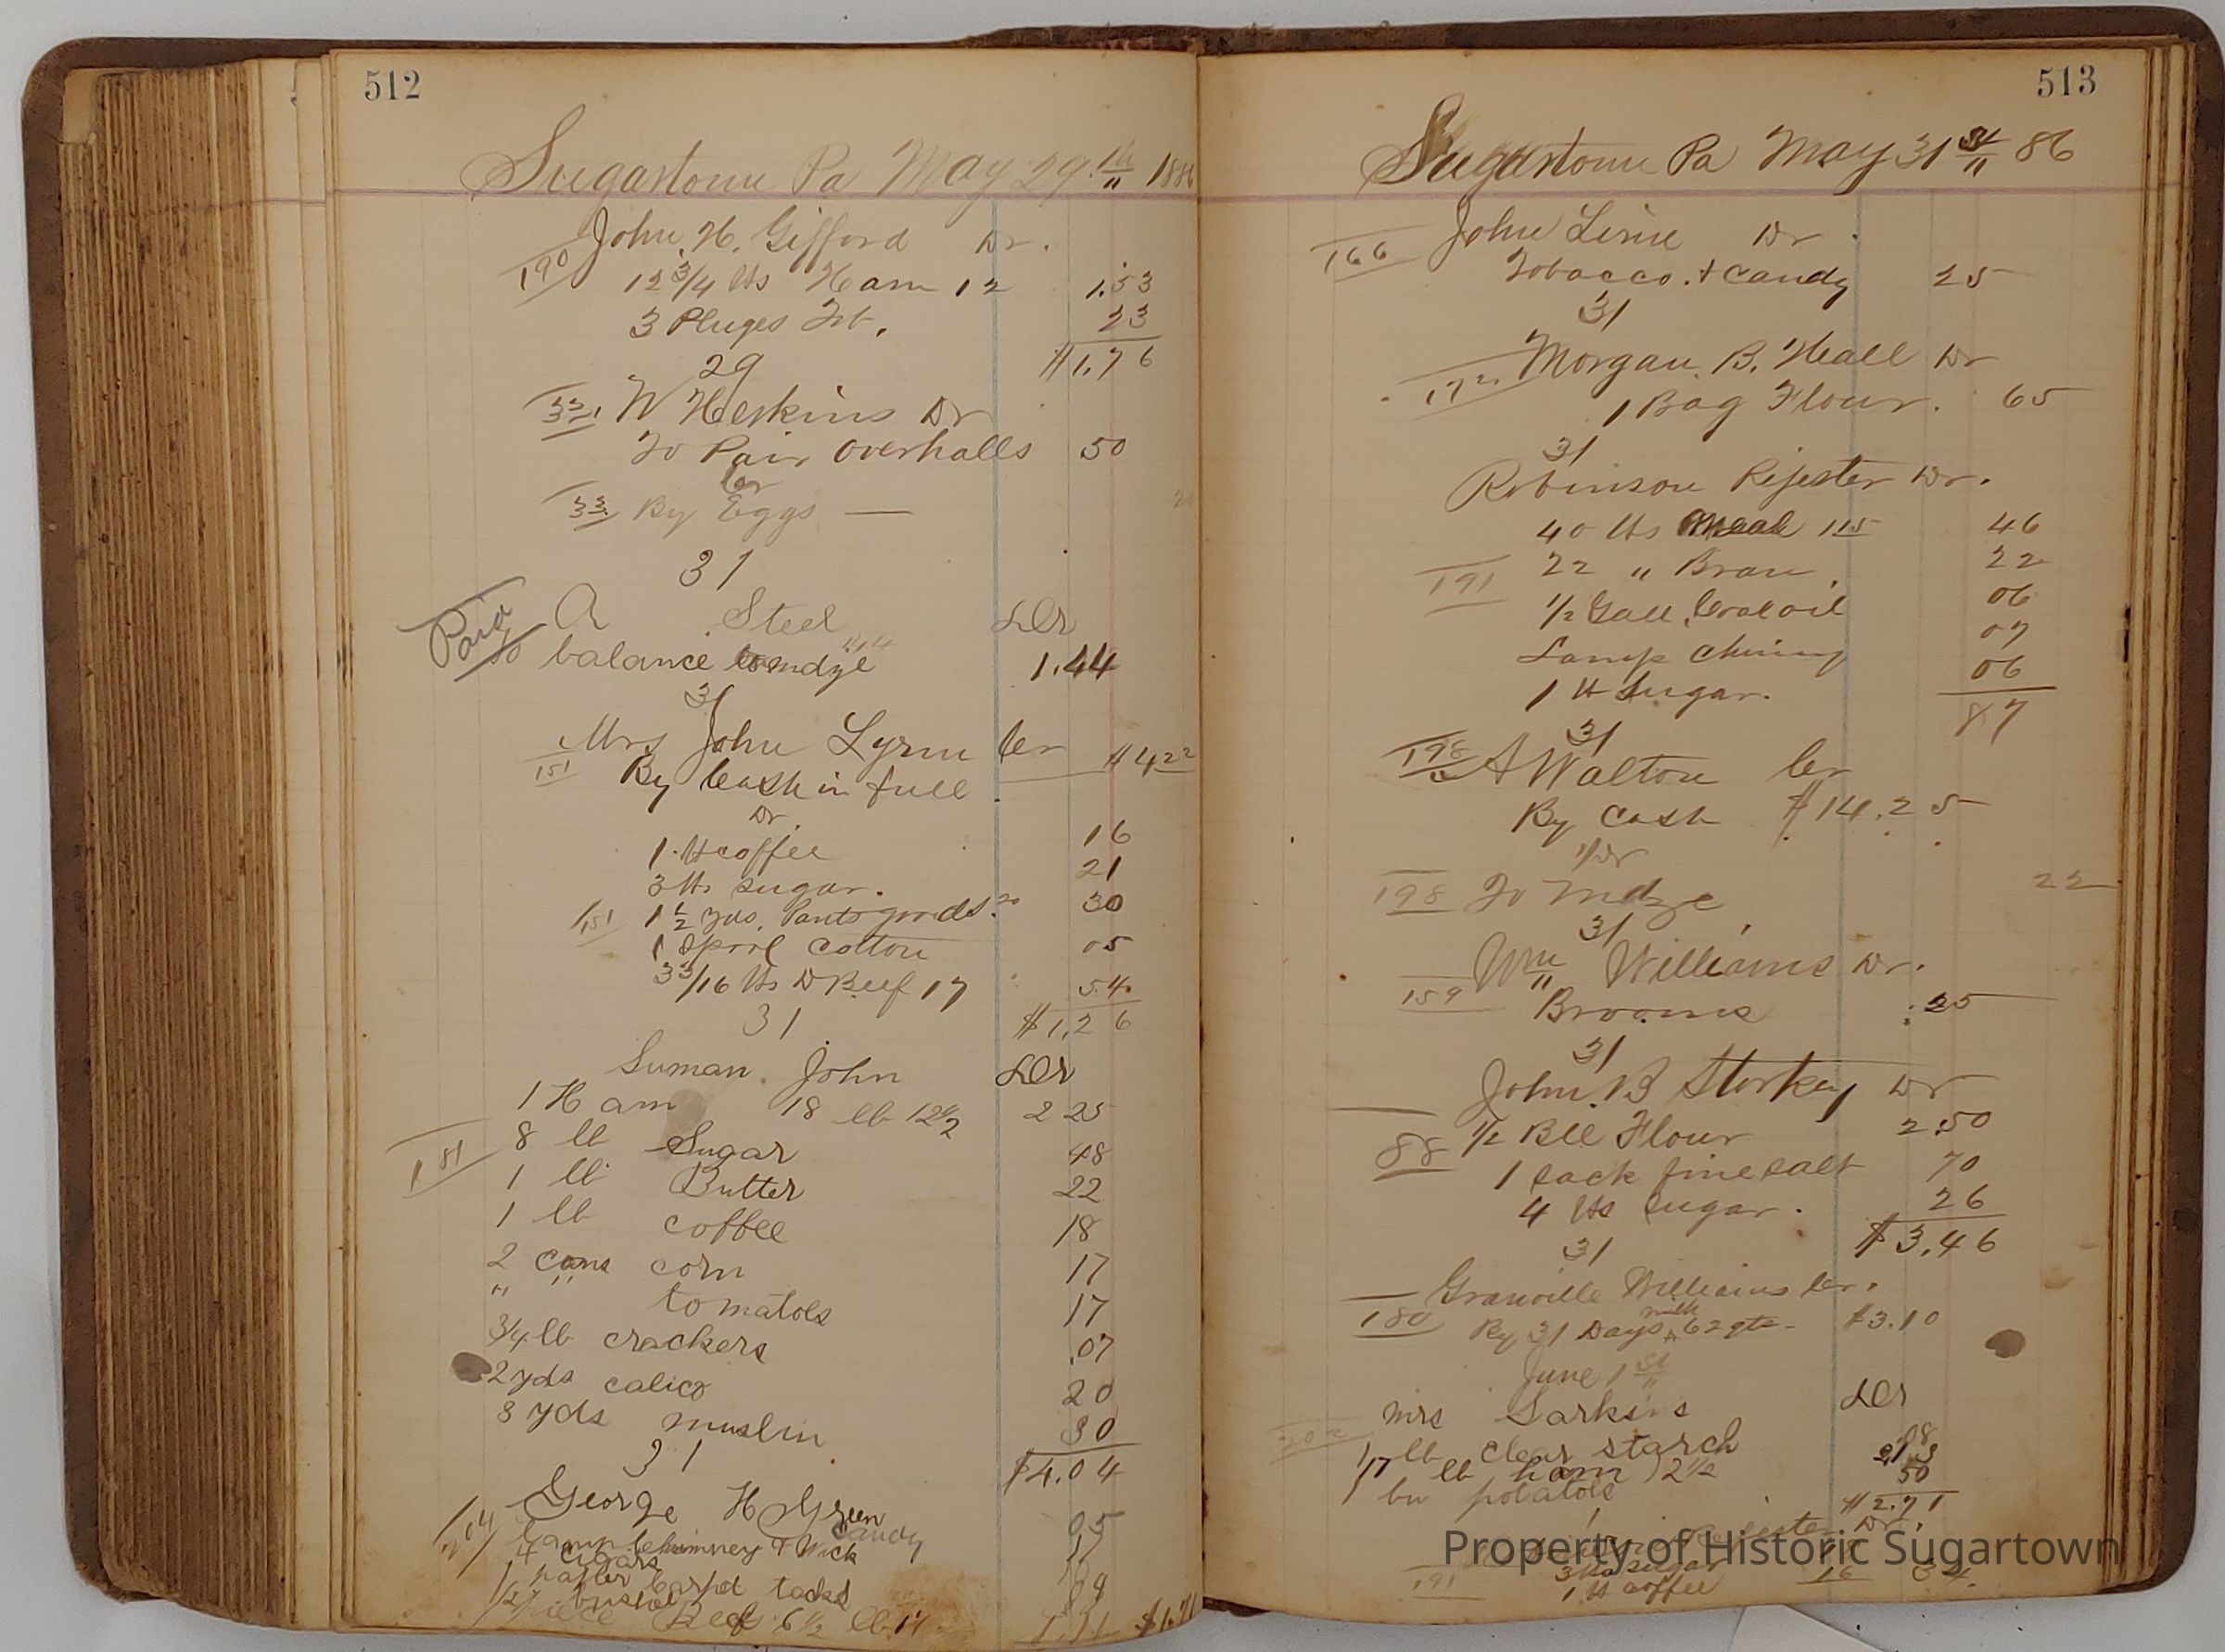 512
Sugartown Pa May 29th 1886
John H. Gifford Dr.
190
12 3/4 lbs Ham 12 1.53
3 Pluges Tob. 23
$1.76
29
331 W Heskins Dr
To Pair Overhalls 50
Cr
33 By Eggs — 20
31
Paid A Steel Dr
balance to mdze 1.44
31
Mrs John Lynn Cr $4.22
151 By Cash in full
Dr
1 lb coffee 16
3 lbs sugar. 21
151 1 1/2 yds. Pants goods 20 30
1 Spool Cotton 05
3 3/16 lbs D Beef 17 54
$1,26
31
Suman John Dr
1 Ham 18 lb 12 1/2 2 25
181 8 lb Sugar 48
1 lb Butter 22
1 lb coffee 18
2 cans corn 17
" " tomatoes 17
3/4 lb crackers .07
2 yds calico 20
3 yds muslin 30
$4.04
31
George H Green
Candy 05
Lamp Chimney & Wick
4 cigars
1 paper Carpet tacks
1/2 bushel
piece Beef 6 1/2 lb 14
513
Sugartown Pa May 31st 86
166 John Line Dr.
Tobacco. & Candy 25
31
172 Morgan. B. Heall Dr
1 Bag Flour. 65
31
Robinson Rijester Dr.
40 lbs Meal 115 46
191 22 " Bran. 22
1/2 Gall. Coal oil 06
Lamp Chimny 07
1 lb Sugar. 06
87
31
198 A Walton Cr
By Cash $14.25
Dr
198 To Mdze 22
31
159 Wm Williams Dr.
Brooms 25
31
John. B Storkey Dr
88 1/2 Bll Flour 2.50
1 Sack fine Salt 70
4 lbs Sugar. 26
$3,46
31
Granville Williams Cr.
180 By 31 Days milk 62 qts - $3.10
June 1st
Mrs Larkins Dr
302
1 lb clear starch 08
17 lb ham 12 1/2 2 13
1 bu potatoes 50
$2.71
1
Dr.
3 lbs sugar
191 1 lb coffee 16 34
Property of Historic Sugartown